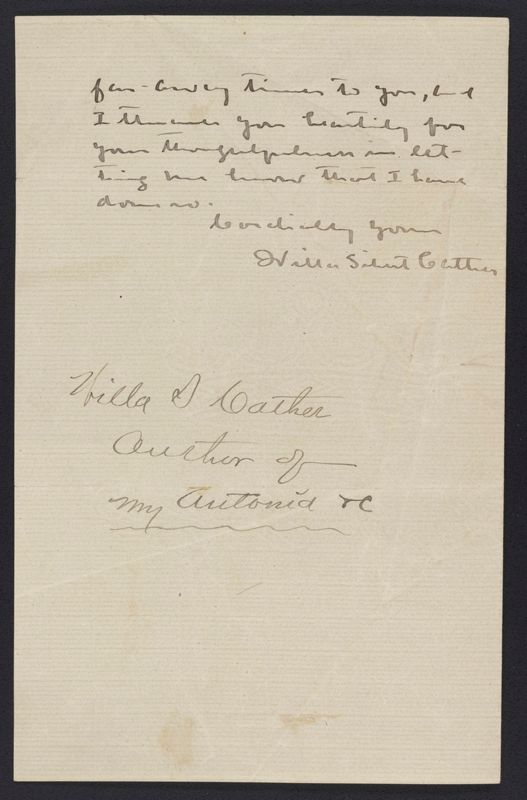 far-away times to you, and
I thank you heartily for
your thoughtfulness in let-
ting me know that I have
done so.
Cordially yours
Willa Sibert Cather
Willa S Cather
Author of
My Antonia &c